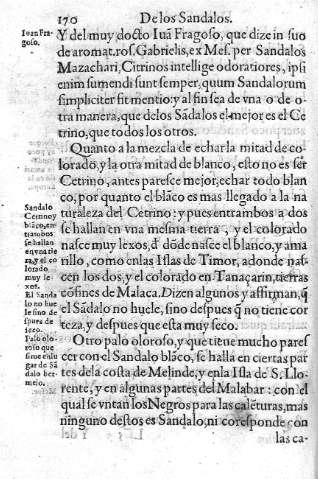 170 De los Sandalos.
Iuan Fra-
goso.
Y del muy docto Iuã Fragoso, que dize in suo
de aromat. ros. Gabrielis, ex Mes. per Sandalos
Mazachari, Citrinos intellige odoratiores, ipsi
enim sumendi sunt semper, quum Sandalorum
simpliciter fit mentio: y al fin sea de vna o de o-
tra manera, que delos Sãdalos el mejor es el Ce
trino, que todos los otros.
Quanto a la mezcla de echar la mitad de co-
lorado, y la otra mitad de blanco, esto no es ser
Cetrino, antes paresce mejor, echar todo blan
co, por quanto el blãco es mas llegado a la na
turaleza del Cetrino: y pues entrambos a dos
se hallan en vna mesma tierra, y el colorado
nasce muy lexos, d̃ dõde nasce el blanco, y ama
rillo, como enlas Islas de Timor, adonde nas-
cen los dos, y el colorado en Tanaçarin, tierras
cõfines de Malaca. Dizen algunos y affirman, q̃
el Sãdalo no huele, sino despues q̃ no tiene cor
teza, y despues que esta muy seco.
Sandalo
Cetrino y
blãco, en-
trambos
se hallan
en vna tie
rra, y el co
lorado
muy le-
xos.
El Sanda
lo no hue
le sino de
spues de
seco.
Palo olo-
roso que
sirue en lu
gar de Sã
dalo ber-
mejo.
Otro palo oloroso, y que tiene mucho pares
cer con el Sandalo blãco, se halla en ciertas par
tes dela costa de Melinde, y enla Isla de S. Llo-
rente, y en algunas partes del Malabar: con el
qual se vntan los Negros para las calẽturas, mas
ninguno destos es Sandalo, ni coresponde con
las ca-